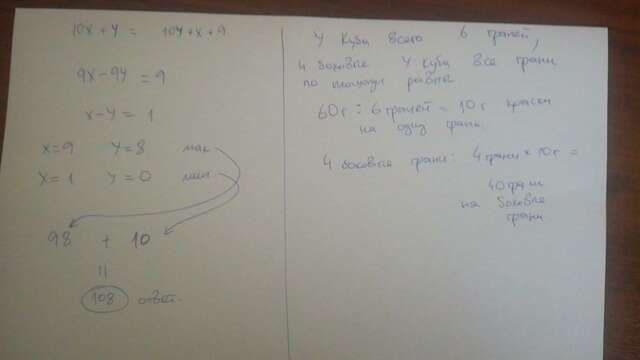 10x + y = 10y + x + 9
9x - 9y = 9
x - y = 1
x = 9 y = 8 мах
x = 1 y = 0 мин
98 + 10
=
108 ответ.
У куба всего 6 граней,
4 боковые У куба все грани
по площади равны
60 г : 6 граней = 10 г краски
на одну грань.
4 боковые грани: 4 грани × 10 г =
40 грамм
на боковые
грани